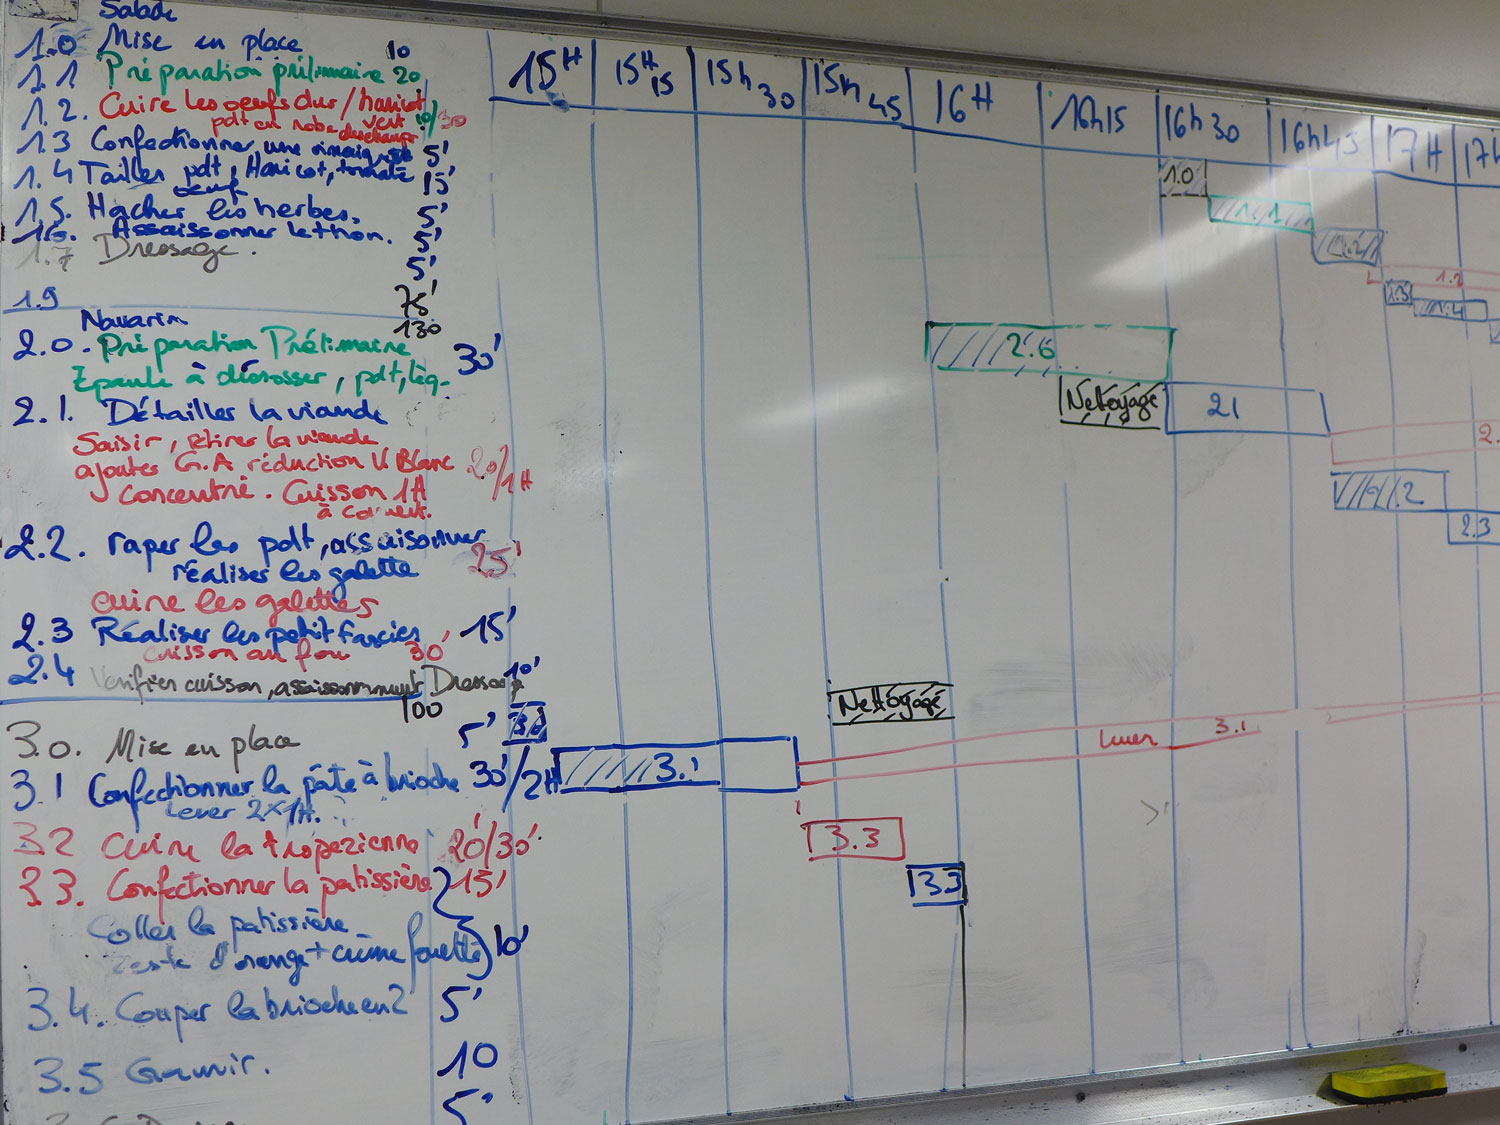 Salade
1.0 Mise en place 10
1.1 Préparation prélimaire 20
1.2. Cuire les oeufs dur / haricot vert 10/30
pdt en robe des champs
1.3 Confectionner une 5'
1.4 Tailler pdt, Haricot, tomate 15'
oeuf
1.5. Hacher les herbes. 5'
1.6. Assaissonner le thon. 5'
1.7 Dressage. 5'
1.9 75'
Navarin 130
2.0. Préparation Prélimaire 30'
Epaule à désosser, pdt, lèg.
2.1. Détailler la viande
Saisir, retirer la viande
ajouter G.A réduction V Blanc 20/1H
concentré. Cuisson 1H
à couvert.
2.2. raper les pdt, assaisonner
réaliser les galette 25'
cuire les galettes
2.3 Réaliser les petit farcies 15'
cuisson au four 30'
2.4 Verifier cuisson, assaisonnement Dressage 10'
100
3.0. Mise en place 5'
3.1 Confectionner la pâte à brioche 30'/2H
Lever 2x1H.
3.2 Cuire la tropezienne 20'/30'
3.3. Confectionner la patissière 15'
Coller la patissière
zeste d'orange + crème fouetté 10'
3.4. Couper la brioche en 2 5'
3.5 Garnir. 10
5'
15H 15H15 15h30 15h45 16H 16h15 16h30 16h45 17H 17h
1.0
1.1
1.2
1.2
1.3 1.4
2.0
Nettoyage 21
2.
2.2
2.3
3.0
Nettoyage
3.1 Lever 3.1
3.3
33